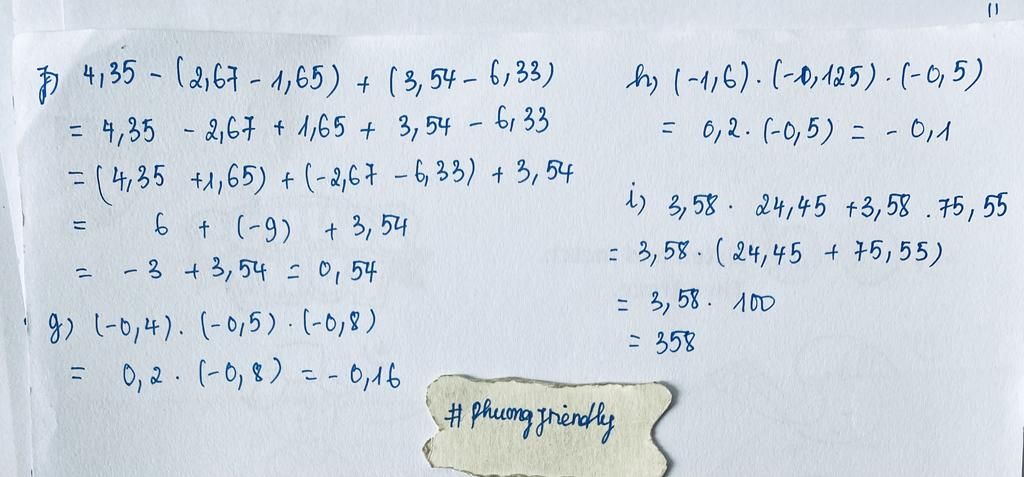 11
f) 4,35 - (2,67 - 1,65) + (3,54 - 6,33)
= 4,35 - 2,67 + 1,65 + 3,54 - 6,33
= (4,35 + 1,65) + (-2,67 - 6,33) + 3,54
= 6 + (-9) + 3,54
= -3 + 3,54 = 0,54
g) (-0,4) . (-0,5) . (-0,8)
= 0,2 . (-0,8) = -0,16
h) (-1,6) . (-0,125) . (-0,5)
= 0,2 . (-0,5) = -0,1
i) 3,58 . 24,45 + 3,58 . 75,55
= 3,58 . (24,45 + 75,55)
= 3,58 . 100
= 358
# phuong friendly